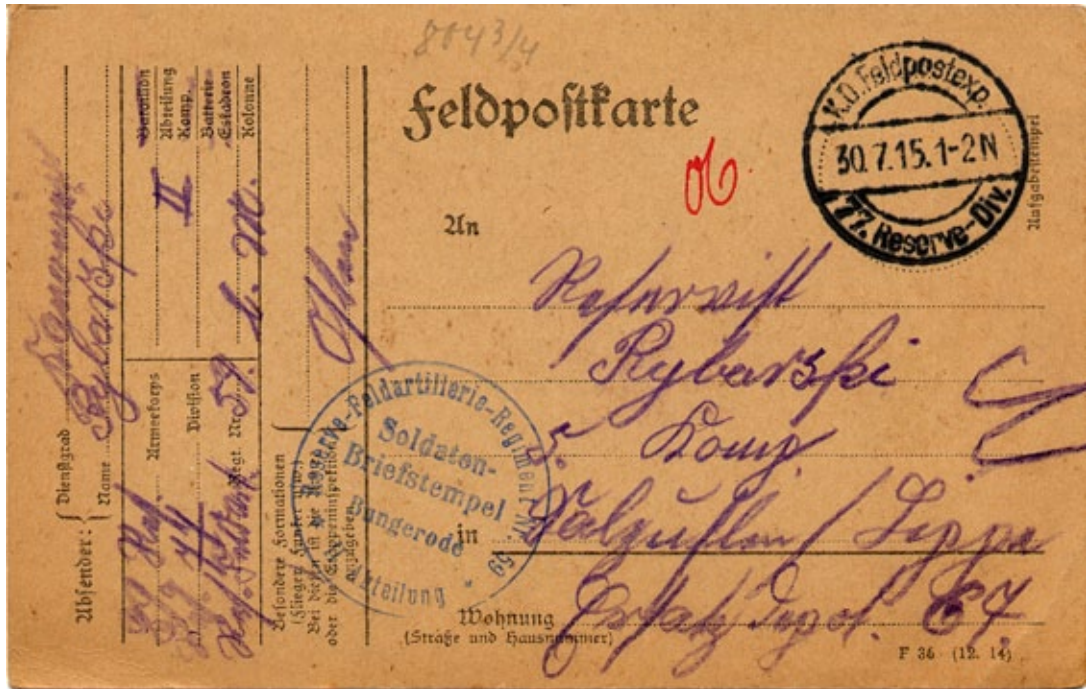 8043/4
Feldpostkarte
06
K.D. Feldpostexp.
30.7.15. 1-2 N
77. Reserve-Div.
Aufgabestempel
An
Reservist
Rybarski
5. Komp.
in
/ Lippe
Ersatz 67
Wohnung
(Straße und Hausnummer)
F 36 (12. 14)
Reserve-Feldartillerie-Regiment Nr 59
Soldaten-
Briefstempel
Bungerode
Abteilung
Absender:
Dienstgrad
Name
Kanonier
Rybarski
Armeekorps
Division
Regt. Nr. 59
Bataillon
Abteilung
Komp.
Batterie
Eskadron
Kolonne
II
L. M.
Besondere Formationen
(Flieger, Funker usw.)
Bei diesen ist die Armee
oder die Etappeninspektion
anzugeben